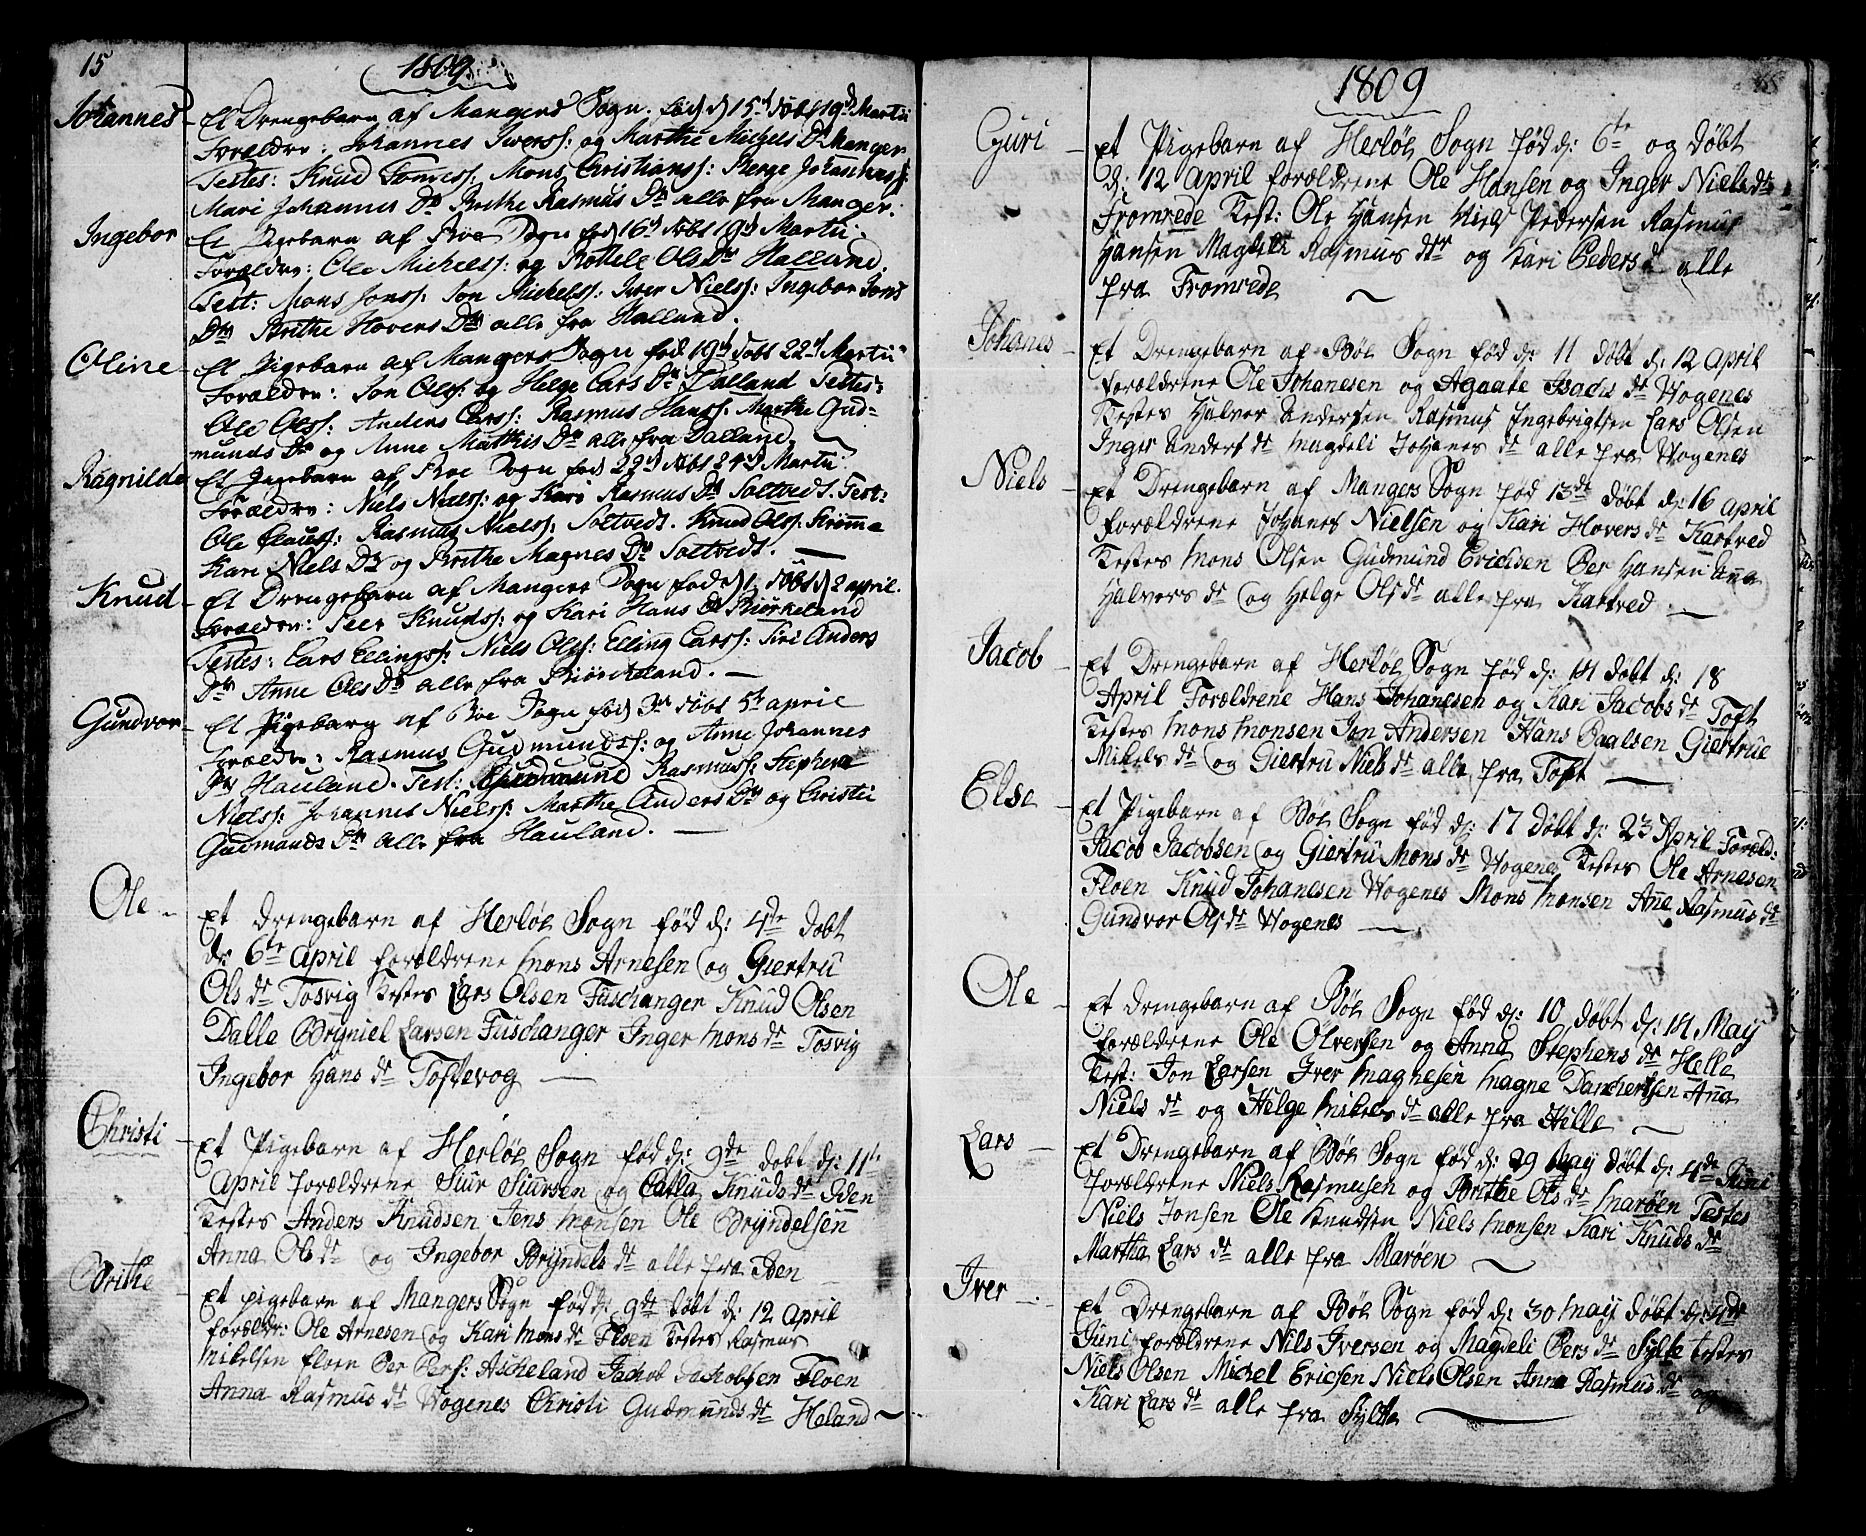 15
1809
Johannes
Et Drengebarn af Mangers Sogn. fød d 15d døbt 19d Martii
Forældre: Johannes Iverss: og Marthe Michels Dr Manger
Testes: Knud Mons Christianss: Børge Johanness:
Mari Johannes Dr Brithe Rasmus Dr alle fra Manger.
Ingebor
Et Pigebarn af Boe Sogn fød 16d døbt 19d Martii.
Forældre: Ole Michelss: og Ols Dr Halland.
Test: Mons Jonss: Jon Michelss: Iver Nielss: Ingebor Jons
Dr Brithe Hovers Dr alle fra Halland.
Oline
Et Pigebarn af Mangers Sogn fød 19d døbt 22d Martii
Forældre: Jon Olss: og Helge Lars Dr Dalland Testes:
Ole Olss: Anders Larss: Rasmus Hanss: Marthe Gud-
munds Dr og Anne Matthis Dr alle fra Dalland
Ragnilde
Et Pigebarn af Boe Sogn fød 22d døbt 24d Martii
Forældre: Niels Nielss: og Kari Rasmus Dr Soltvedt. Test:
Ole Rasmus Nielss: Soltvedt. Knud Olss.
Kari Niels Dr og Brithe Magnes Dr Soltvedt.
Knud
Et Drengebarn af Mangers Sogn fød d 1 døbt d 2 april.
Forældre: Peer Knudss: og Kari Hans Dr Biørkeland
Testes: Lars Ellingss: Niels Olss: Elling Larss: Siri Anders
Dr Anne Ols Dr alle fra Biørkeland.
Gundvor
Et Pigebarn af Boe Sogn fød døbt 5t april
Forældre: Rasmus Gudmundss: og Anne Johannes
Dr Hauland. Test: Gudmund Rasmuss: Stephen
Nielss: Johannes Nielss: Marthe Anders Dr og Christi
Gudmunds Dr alle fra Hauland.
Ole
Et Drengebarn af Herløe Sogn fød d: 4de døbt
d: 6te April forældrene Mons Arnesen og Giertru
Ols dr Tosvig Testes Lars Olsen Fuschanger Knud Olsen
Dalle Bryniel Larsen Fuschanger Inger Mons dr Tosvig
Ingebor Hans dr Toftevog
Christi
Et Pigebarn af Herløe Sogn fød d: 9de døbt d: 11te
April forældrene Siur Siursen og Calla Knuds dr Iden
Testes Anders Knudsen Jens Monsen Ole Bryndelsen
Anna Ols dr og Ingebor Bryndels dr alle fra Iden
Brithe
Et pigebarn af Mangers Sogn fød d: 9de døbt d: 12 April
forældr: Ole Arnesen og Kari Mons dr Floen Testes Rasmus
Mikelsen floen Per Pers: Ascheland Jachob Jachobsen Floen
Anna Rasmus dr Wogenes Christi Gudmunds dr Haland
1809
Guri
Et Pigebarn af Herløe Sogn fød d: 6te og døbt
d: 12 April forældrene Ole Hansen og Inger Niels dr
Fromrede Test: Ole Hansen Niels Pedersen Rasmus
Hansen Magdeli Rasmus dtr og Kari Peders d alle
fra Fromrede
Johanes
Et Drengebarn af Bøe Sogn fød d: 11 døbt d: 12 April
forældrene Ole Johanesen og Agaate Isachs dr Wogenes
Testes Halvor Andersen Rasmus Ingebrigtsen Lars Olsen
Inger Anders dr Magdeli Johanes dr alle fra Wogenes
Niels
Et Drengebarn af Mangers Sogn fød 13de døbt d: 16 April
forældrene Johanes Nielsen og Kari Hovers dr Kartved
Testes Mons Olsen Gudmund Erichsen Per Hansen Ana
Halvors dr og Helge Ols dr alle fra Kartved
Jacob
Et Drengebarn af Herløe Sogn fød d: 14 døbt d: 18
April Forældrene Hans Johanesen og Kari Jacobs dr Toft
Testes Mons Monsen Jon Andersen Hans Paalsen Giertrue
Mikels dr og Giertru Niels dr alle fra Toft
Else
Et Pigebarn af Bøe Sogn fød d: 17 døbt d: 23 April Foræld:
Jacob Jacobsen og Giertru Mons dr Wogenes Testes Ole Arnesen
Floen Knud Johanesen Wogenes Mons Monsen Ane Rasmus dr
Gundvor Ols dr Wogenes
Ole
Et Drengebarn af Bøe Sogn fød d: 10 døbt d: 14 May
forældrene Ole Olversen og Anna Stephens dr Helle
Test: Jon Larsen Iver Magnesen Magne Danchertsen Ana
Niels dr og Helge Mikels dr alle fra Hille
Lars
Et Drengebarn af Bøe Sogn fød d: 29 May døbt d: 4de Juni
forældrene Niels Rasmusen og Brithe Ols dr Marøen Testes
Niels Jonsen Ole Knudsen Niels Monsen Kari Knuds dr
Martha Lars dr alle fra Marøen
Iver
Et Drengebarn af Bøe Sogn fød d: 30 May døbt d: 4de
Juni forældrene Nils Iversen og Magdeli Pers dr Sylte Testes
Niels Olsen Michel Ericsen Niels Olsen Anna Rasmus dr og
Kari Lars dr alle fra Sylte